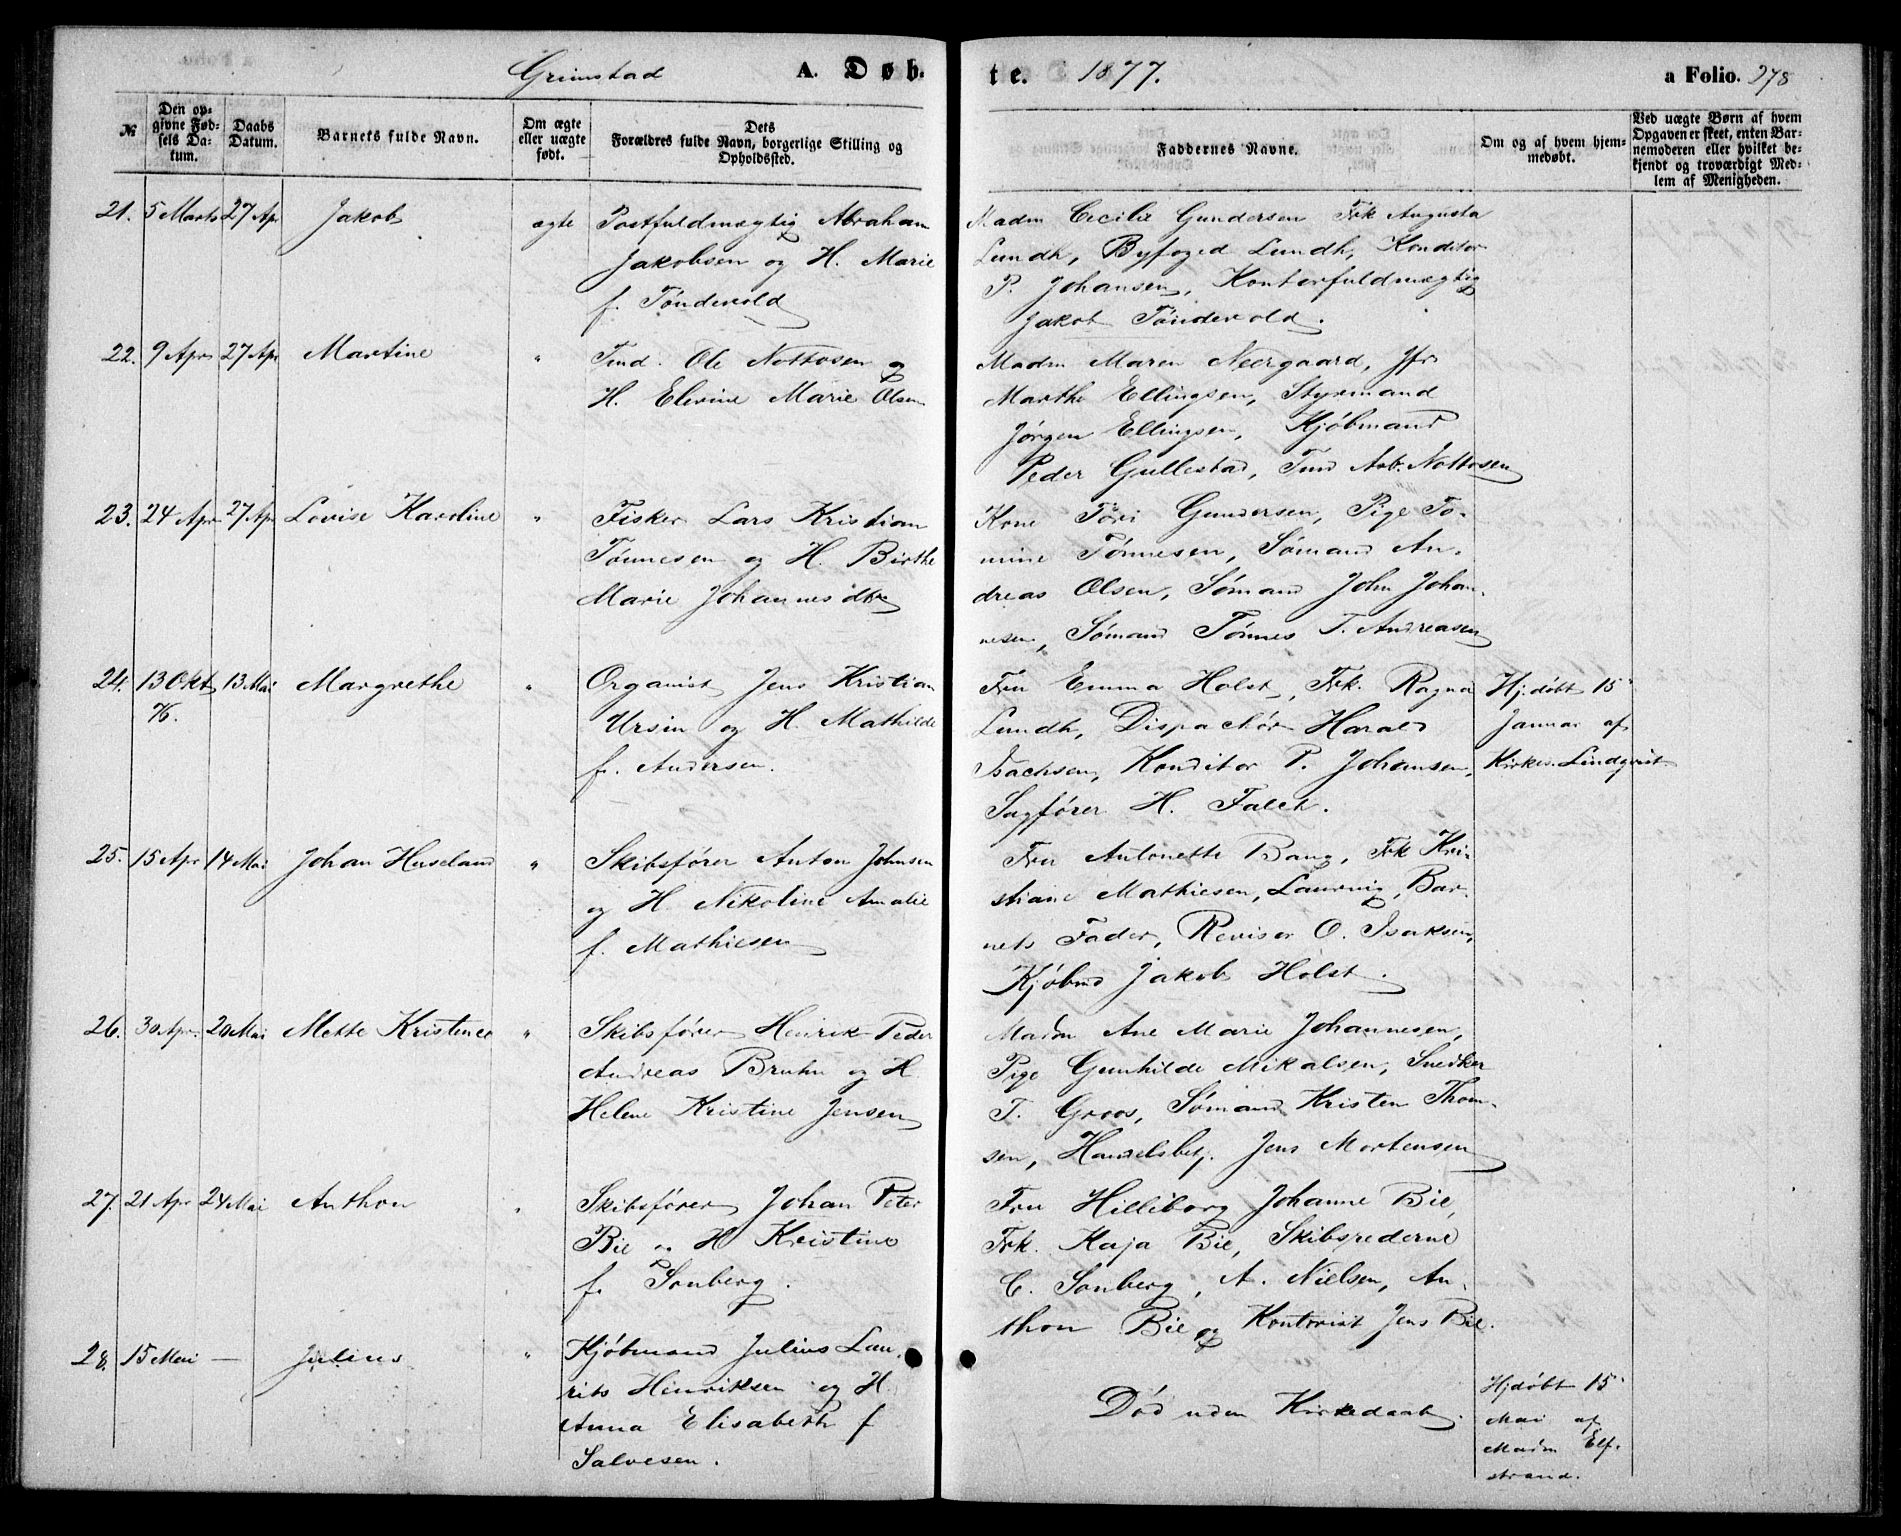 Grimstad A. Døb-
te. 1877. a Folio. 278
№
Den op-
givne Fød-
sels Da-
tum.
Daabs
Datum.
Barnets fulde Navn.
Om ægte
eller uægte
født.
Dets
Forældres fulde Navn, borgerlige Stilling og
Opholdssted.
Faddernes Navne.
Om og af hvem hjem-
medøbt.
Ved uægte Børn af hvem
Opgaven er skeet, enten Bar-
nemoderen eller hvilket be-
kjendt og troværdigt Med-
lem af Menigheden.
21. 5 Marts 27 Apr Jakob ægte Postfuldmægtig Abraham
Jakobsen og H. Marie
f. Tøndevold
Madm Cecilie Gundersen Frk Augusta
Lundh, Byfoged Lundh, Konditor
P. Johansen, Kontorfuldmægtig
Jakob Tøndevold.
22. 9 Apr 27 Apr Martine " Tmd. Ole Nottosen og
H. Elevine Marie Olsen
Madm Maren Neergaard, Jfr
Marthe Ellingsen, Styrmand
Jørgen Ellingsen, Kjøbmand
Peder Gullestad, Tmd Asb. Nottosen
23. 24 Apr 27 Apr Lovise Karoline " Fisker Lars Kristian
Tønnesen og H. Birthe
Marie Johannesdtr
Kone Tøri Gundersen, Pige To-
mine Tønnesen, Sømand An-
dreas Olsen, Sømand John Johan-
nesen, Sømand Tønnes T. Andreasen
24. 13 Okt 13 Mai Margrethe " Organist Jens Kristian
76. Ursin og H. Mathilde
f. Andersen.
Fru Emma Holst, Frk. Ragna
Lundh, Dispachør Harald
Isachsen, Konditor P. Johansen,
Sagfører H. Falch.
Hj.døbt 15
Januar af
Kirkes. Lindqvist
25. 15 Apr 14 Mai Johan Huseland " Skibsfører Anton Johnsen
og H. Nikoline Amalie
f. Mathiesen
Fru Antonette Bang, Frk Kri-
stiane Mathiesen, Laurvig, Bar-
nets Fader, Revisor O. Isaksen,
Kjøbmd Jakob Holst.
26. 30 Apr. 20 Mai Mette Kristence " Skibsfører Henrik Peder
Andreas Bruhn og H.
Helene Kristine Jensen
Madm Ane Marie Johannesen,
Pige Gunhilde Mikalsen, Snedker
T. Groos, Sømand Kristen Thom-
sen, Handelsbetj. Jens Mortensen
27. 21 Apr 24 Mai Anthon " Skibsfører Johan Peter
Bie og H Kristine
f. Sonberg.
Fru Hilliborg Johanne Bie,
Frk. Kaja Bie, Skibsrederne
C. Sonberg, A. Nielsen, An-
thon Bie og Kontorist Jens Bie.
28. 15 Mai — Julius " Kjøbmand Julius Lau-
rits Henriksen og H.
Anna Elisabeth f
Salvesen.
Død uden Kirkedaab.
Hjdøbt 15
Mai af
Madm Elf-
strand.